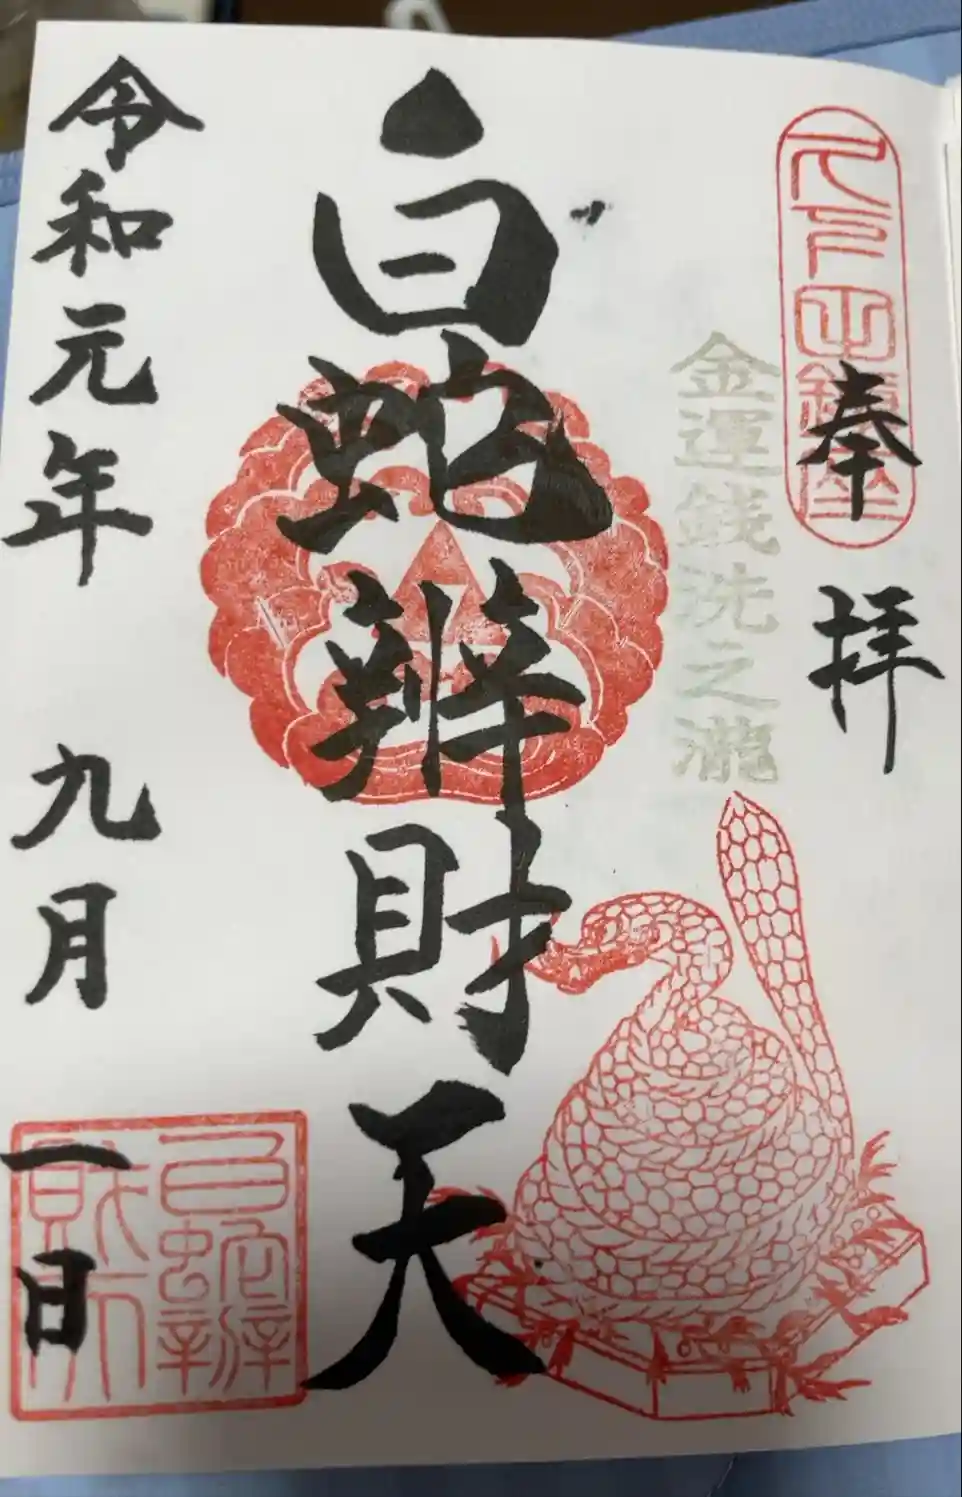 久下田鎮座
奉拝
金運銭洗之瀧
白蛇辨財天
令和元年 九月 一日
白蛇辨
財天